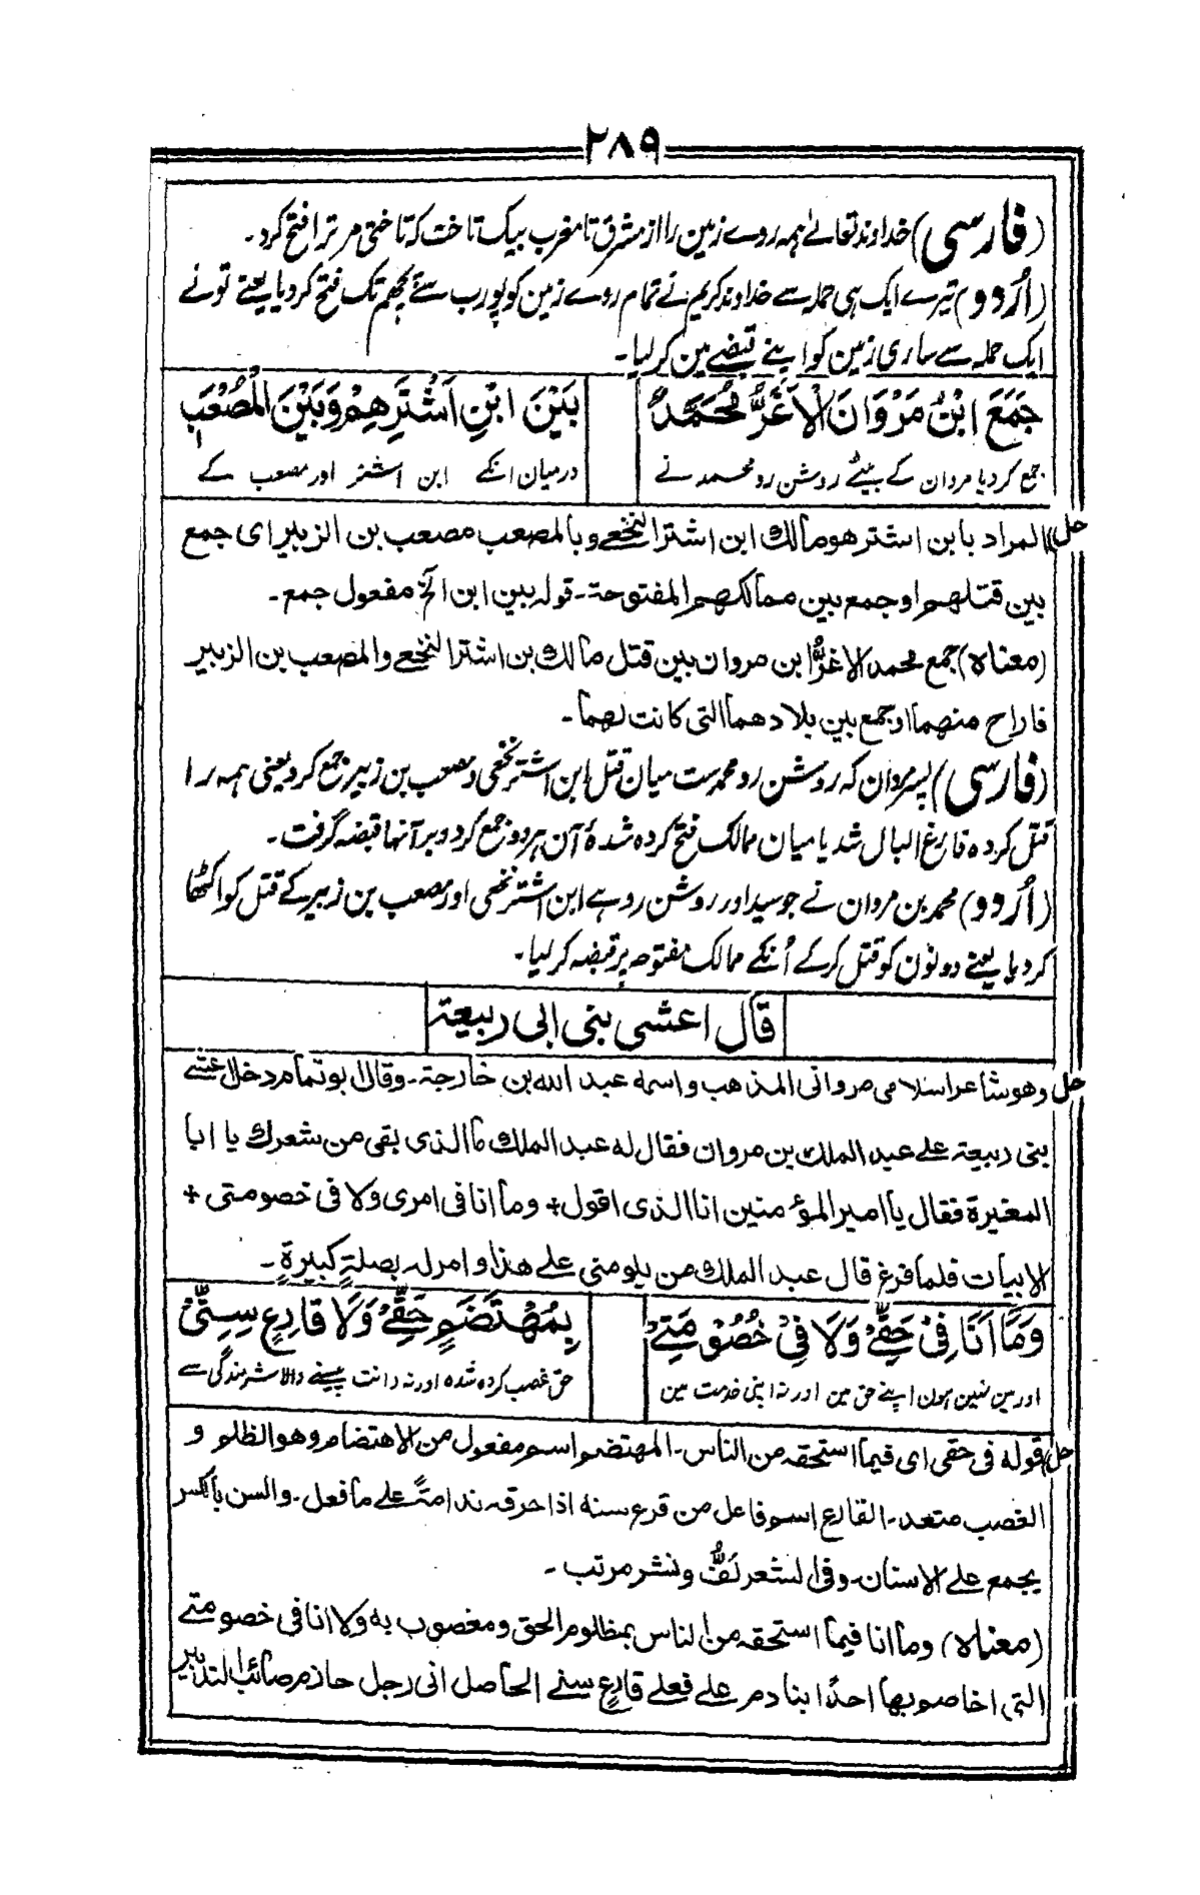 ۲۸۹
(فارسی) خداوند تعالے ہمہ روے زمین را از مشرق تا مغرب بیک تاخت کہ تاختی مر ترا فتح کرد۔
(اُردو) تیرے ایک ہی حملہ سے خداوند کریم نے تمام روے زمین کو پورب سے پچھم تک فتح کر دیا یعنے تو نے
ایک حملہ سے ساری زمین کو اپنے قبضے مین کر لیا۔
جَمَعَ ابْنُ مَرْوَانَ الْأَغَرُّ مُحَمَّدٌ
بَيْنَ ابْنِ اَشْتَرِهِمْ وَبَيْنَ الْمُصْعَبِ
جمع کر دیا مردان کے بیٹے روشن رو محمد نے
درمیان انکے ابن اشتر اور مصعب کے
حل) المراد بابن اشتر هو مالك ابن اشتر النخعے وبالمصعب مصعب بن الزبير ای جمع
بین قتلهم او جمع بین ممالكهم المفتوحة۔ قوله بین ابن الخ مفعول جمع۔
(معناه) جمع محمد الاغرُّ ابن مروان بین قتل مالك بن اشتر النخعے والمصعب بن الزبير
فاراح منهما او جمع بین بلادهما التی كانت لهما۔
(فارسی) پسر مردان کہ روشن رو محمد ست میان قتل ابن اشتر نخعی و مصعب بن زبیر جمع کرد یعنی ہمہ را
قتل کردہ فارغ البال شد یا میان ممالک فتح کردہ شدۂ آن ہر دو جمع کرد و بر آنہا قبضہ گرفت۔
(اُردو) محمد بن مردان نے جو سید اور روشن رو ہے ابن اشتر نخعی اور مصعب بن زبیر کے قتل کو اکٹھا
کر دیا یعنے دونون کو قتل کر کے اُنکے ممالک مفتوحہ پر قبضہ کر لیا۔
قال اعشی بنی ابی ربیعة
حل وهو شاعر اسلامی مروانی المذهب واسمه عبد الله بن خارجة۔ وقال ابو تمام دخل اعشے
بنی ربیعة علے عبد الملك بن مروان فقال له عبد الملك ما الذی بقی من شعرك یا ابا
المغیرة فقال یا امیر المؤمنین انا الذی اقول + وما انا فی امری ولا فی خصومتی +
الابیات فلما فرغ قال عبد الملك من یلومنی علے هذا وامر له بصلةٍ كبیرةٍ۔
وَمَا اَنَا فِیْ حَقِّیْ وَلَا فِیْ خُصُوْمَتِیْ
بِمُهْتَضَمٍ حَقِّیْ وَلَا قَارِعٍ سِنِّیْ
اور مین نہین ہون اپنے حق مین اور نہ اپنی خدمت مین
حق غصب کردہ شدہ اور نہ دانت پیسنے والا شرمندگی سے
حل) قوله فی حقی ای فیما استحقه من الناس۔ المهتضم اسم مفعول من الاهتضام وهو الظلم و
الغصب متعد۔ القارع اسم فاعل من قرع سنه اذا حرقه ندامتً علے ما فعل۔ والسن بالكسر
یجمع علے الاسنان۔ وفی الشعر لَفٌّ ونشر مرتب۔
(معناه) وما انا فیما استحقه من الناس بمظلوم الحق ومغصوب به ولا انا فی خصومتے
التی اخاصم بها احدًا بنادم علے فعلے قارع سنے الحاصل انی رجل حازم صائب التدبیر